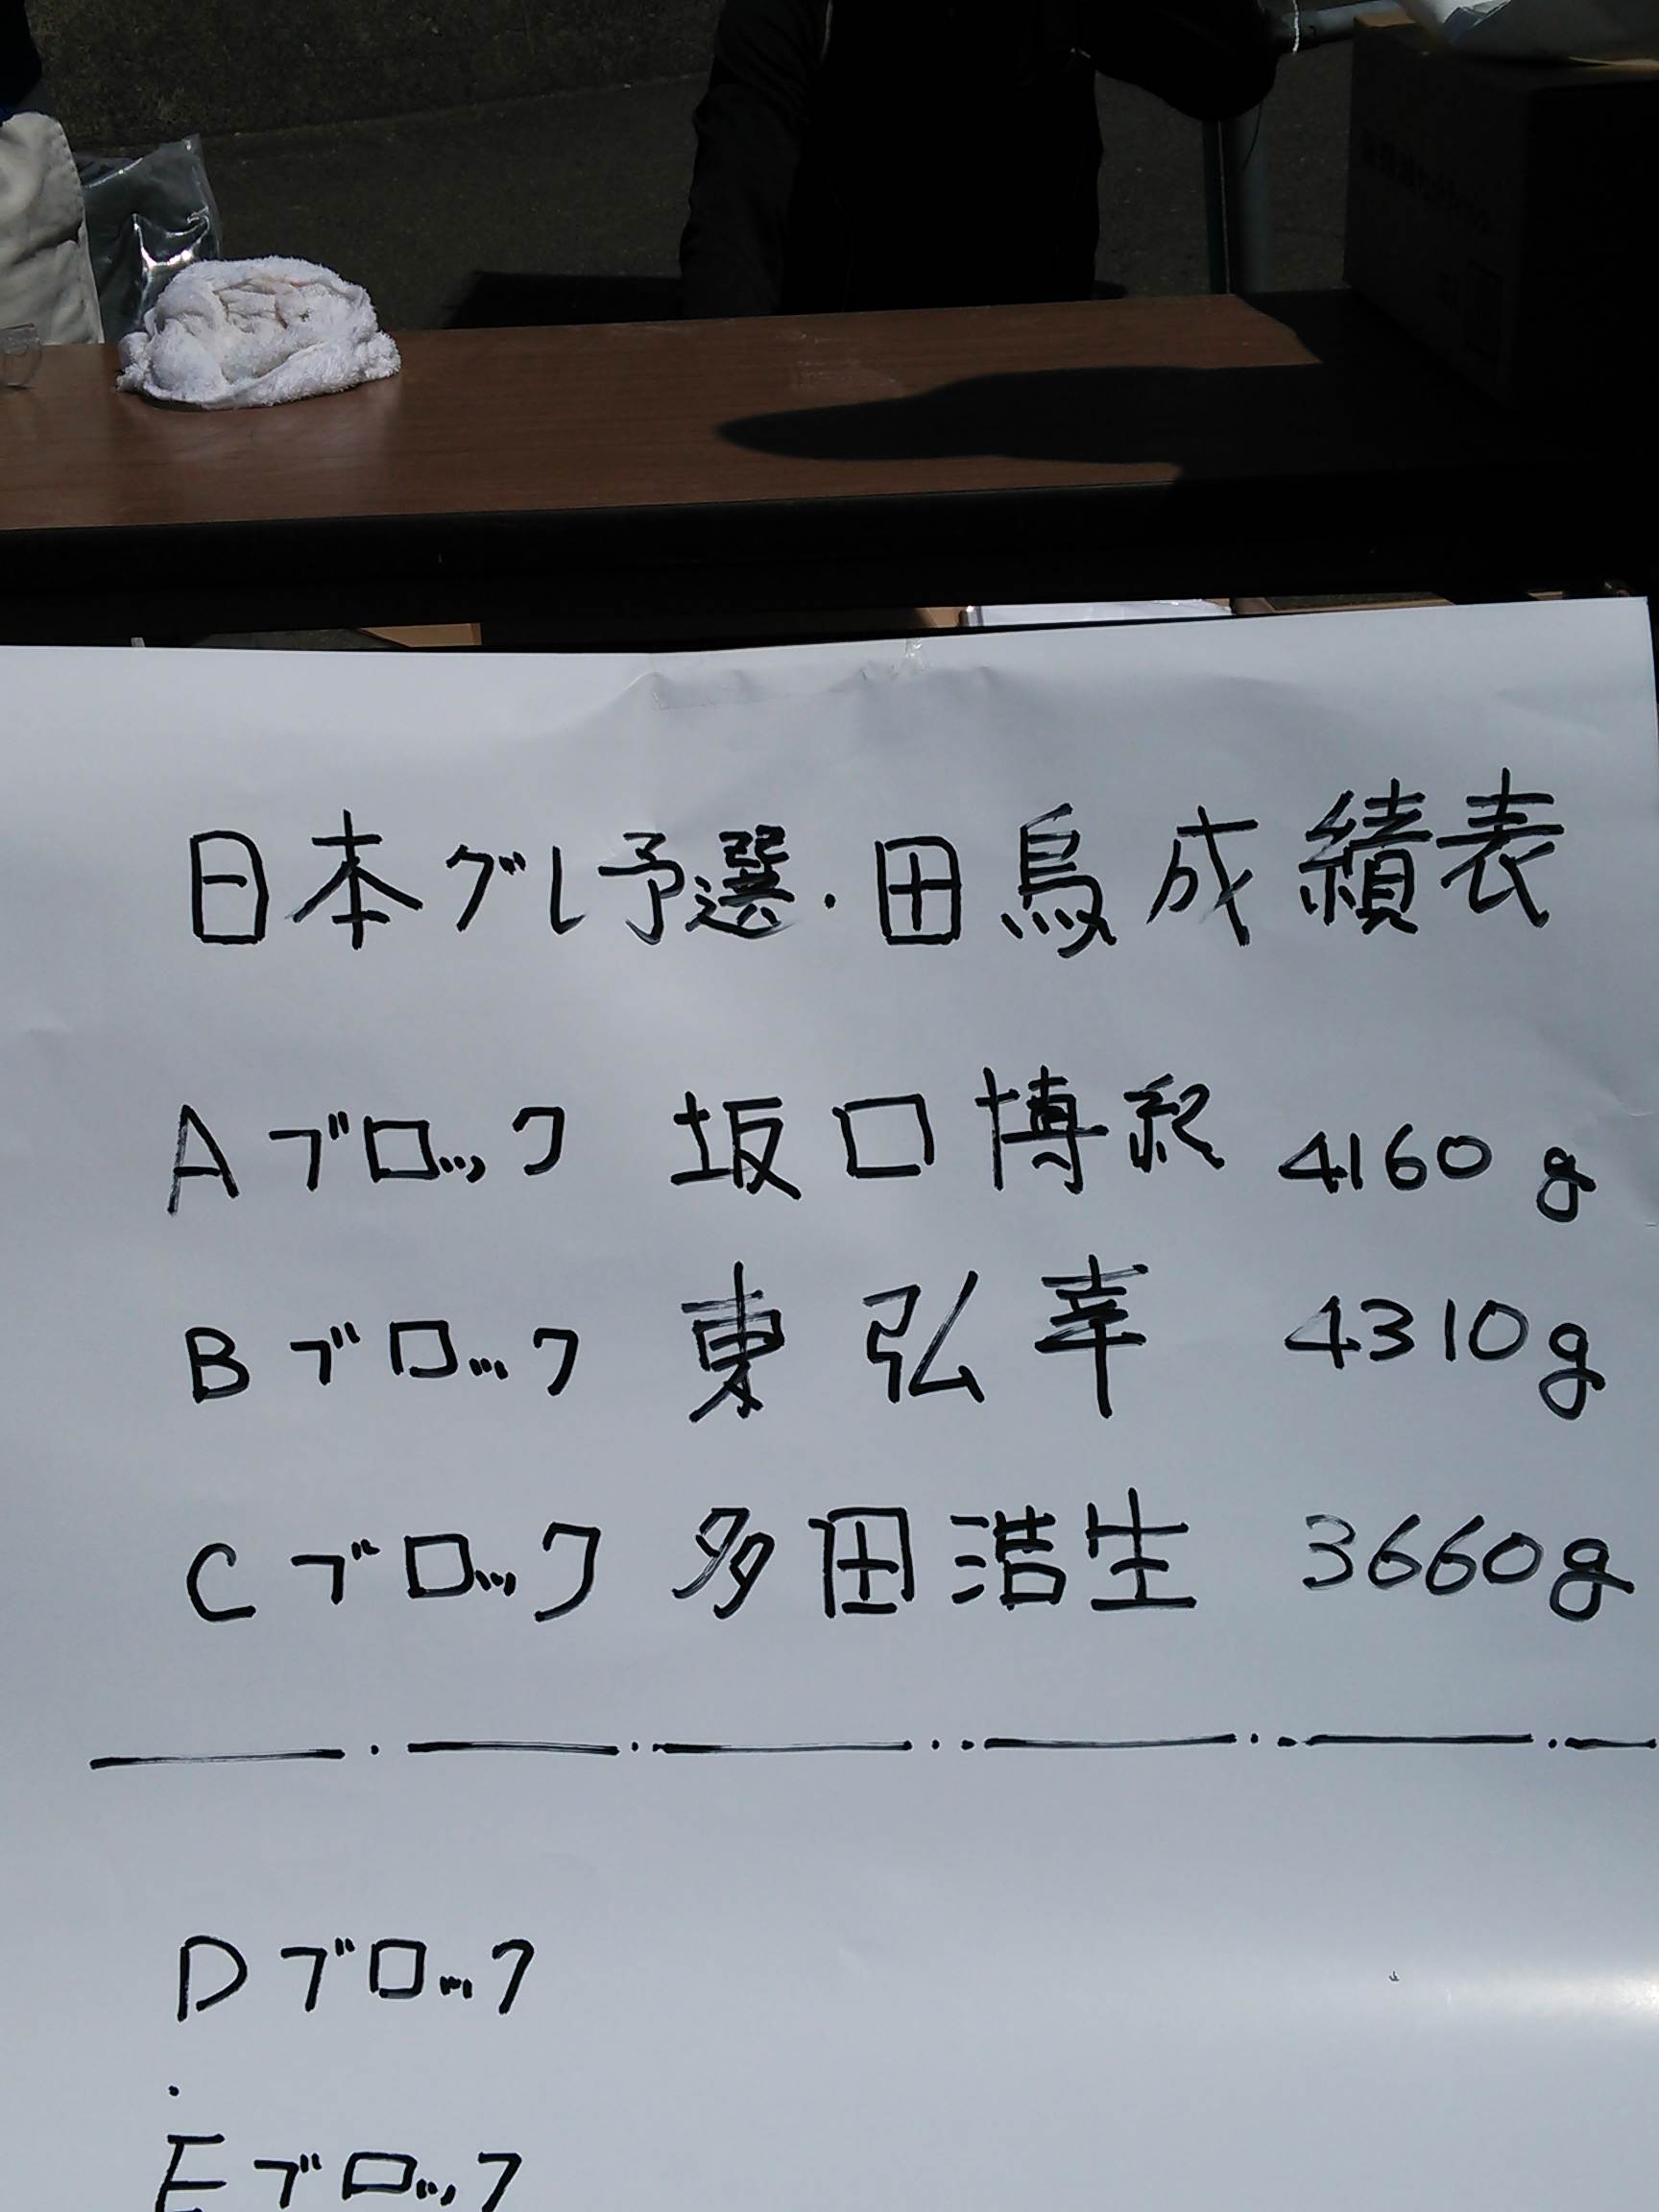 日本グレ予選・田烏成績表
Aブロック 坂口博紀 4160g
Bブロック 東弘幸 4310g
Cブロック 多田浩生 3660g
Dブロック
Eブロック